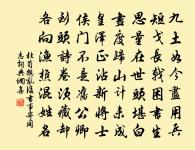 九土如今盡用兵
短戈長戟困書生
思量在世頭堪白
畫度歸山計未成
皇澤正沾新將士
侯門不是舊公卿
到頭詩卷須藏却
各向漁樵混姓名
杜荀鶴亂後書事寄同
志